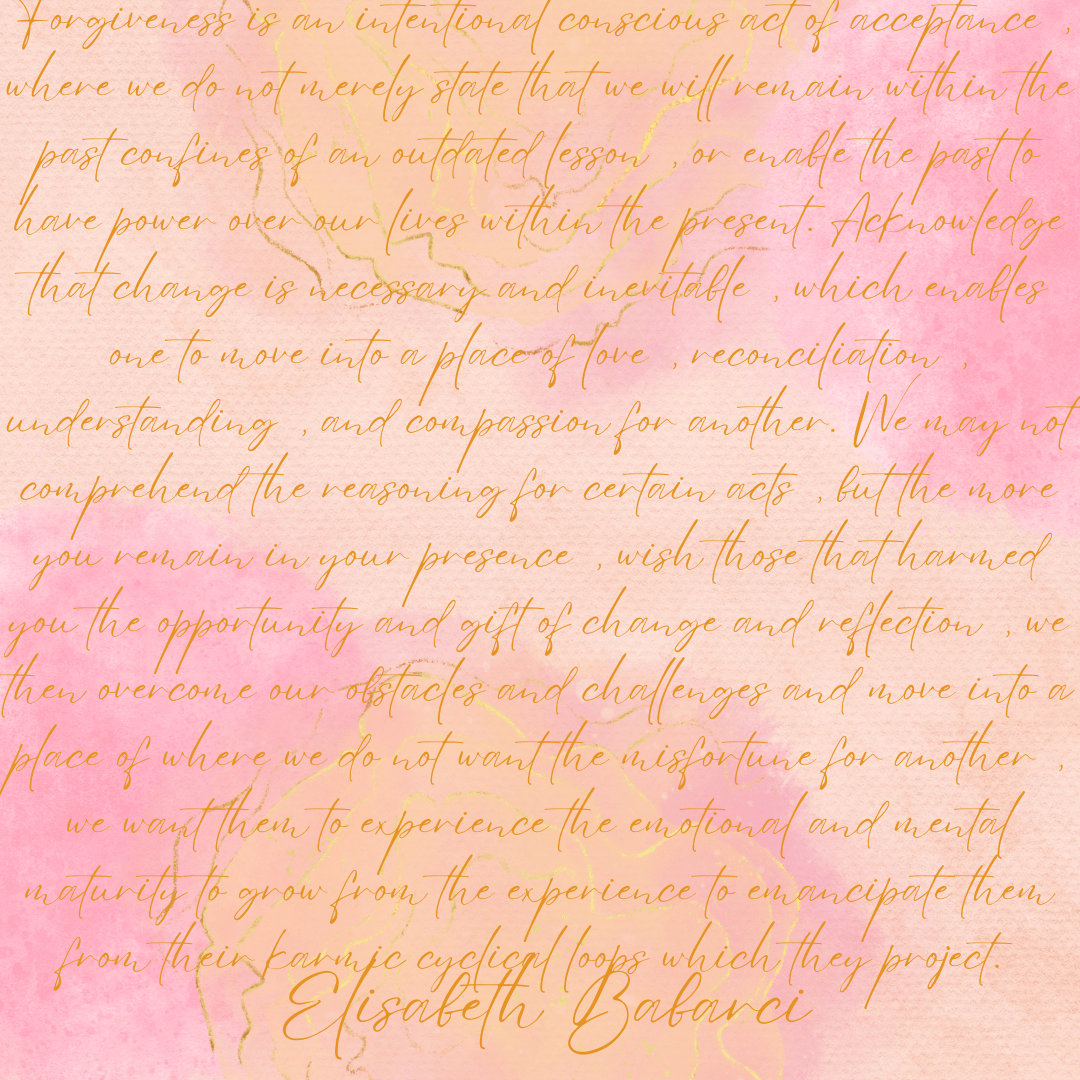 Forgiveness is an intentional conscious act of acceptance ,
where we do not merely state that we will remain within the
past confines of an outdated lesson , or enable the past to
have power over our lives within the present. Acknowledge
that change is necessary and inevitable , which enables
one to move into a place of love , reconciliation ,
understanding , and compassion for another. We may not
comprehend the reasoning for certain acts , but the more
you remain in your presence , wish those that harmed
you the opportunity and gift of change and reflection , we
then overcome our obstacles and challenges and move into a
place of where we do not want the misfortune for another ,
we want them to experience the emotional and mental
maturity to grow from the experience to emancipate them
from their karmic cyclical loops which they project.
Elisabeth Babarci